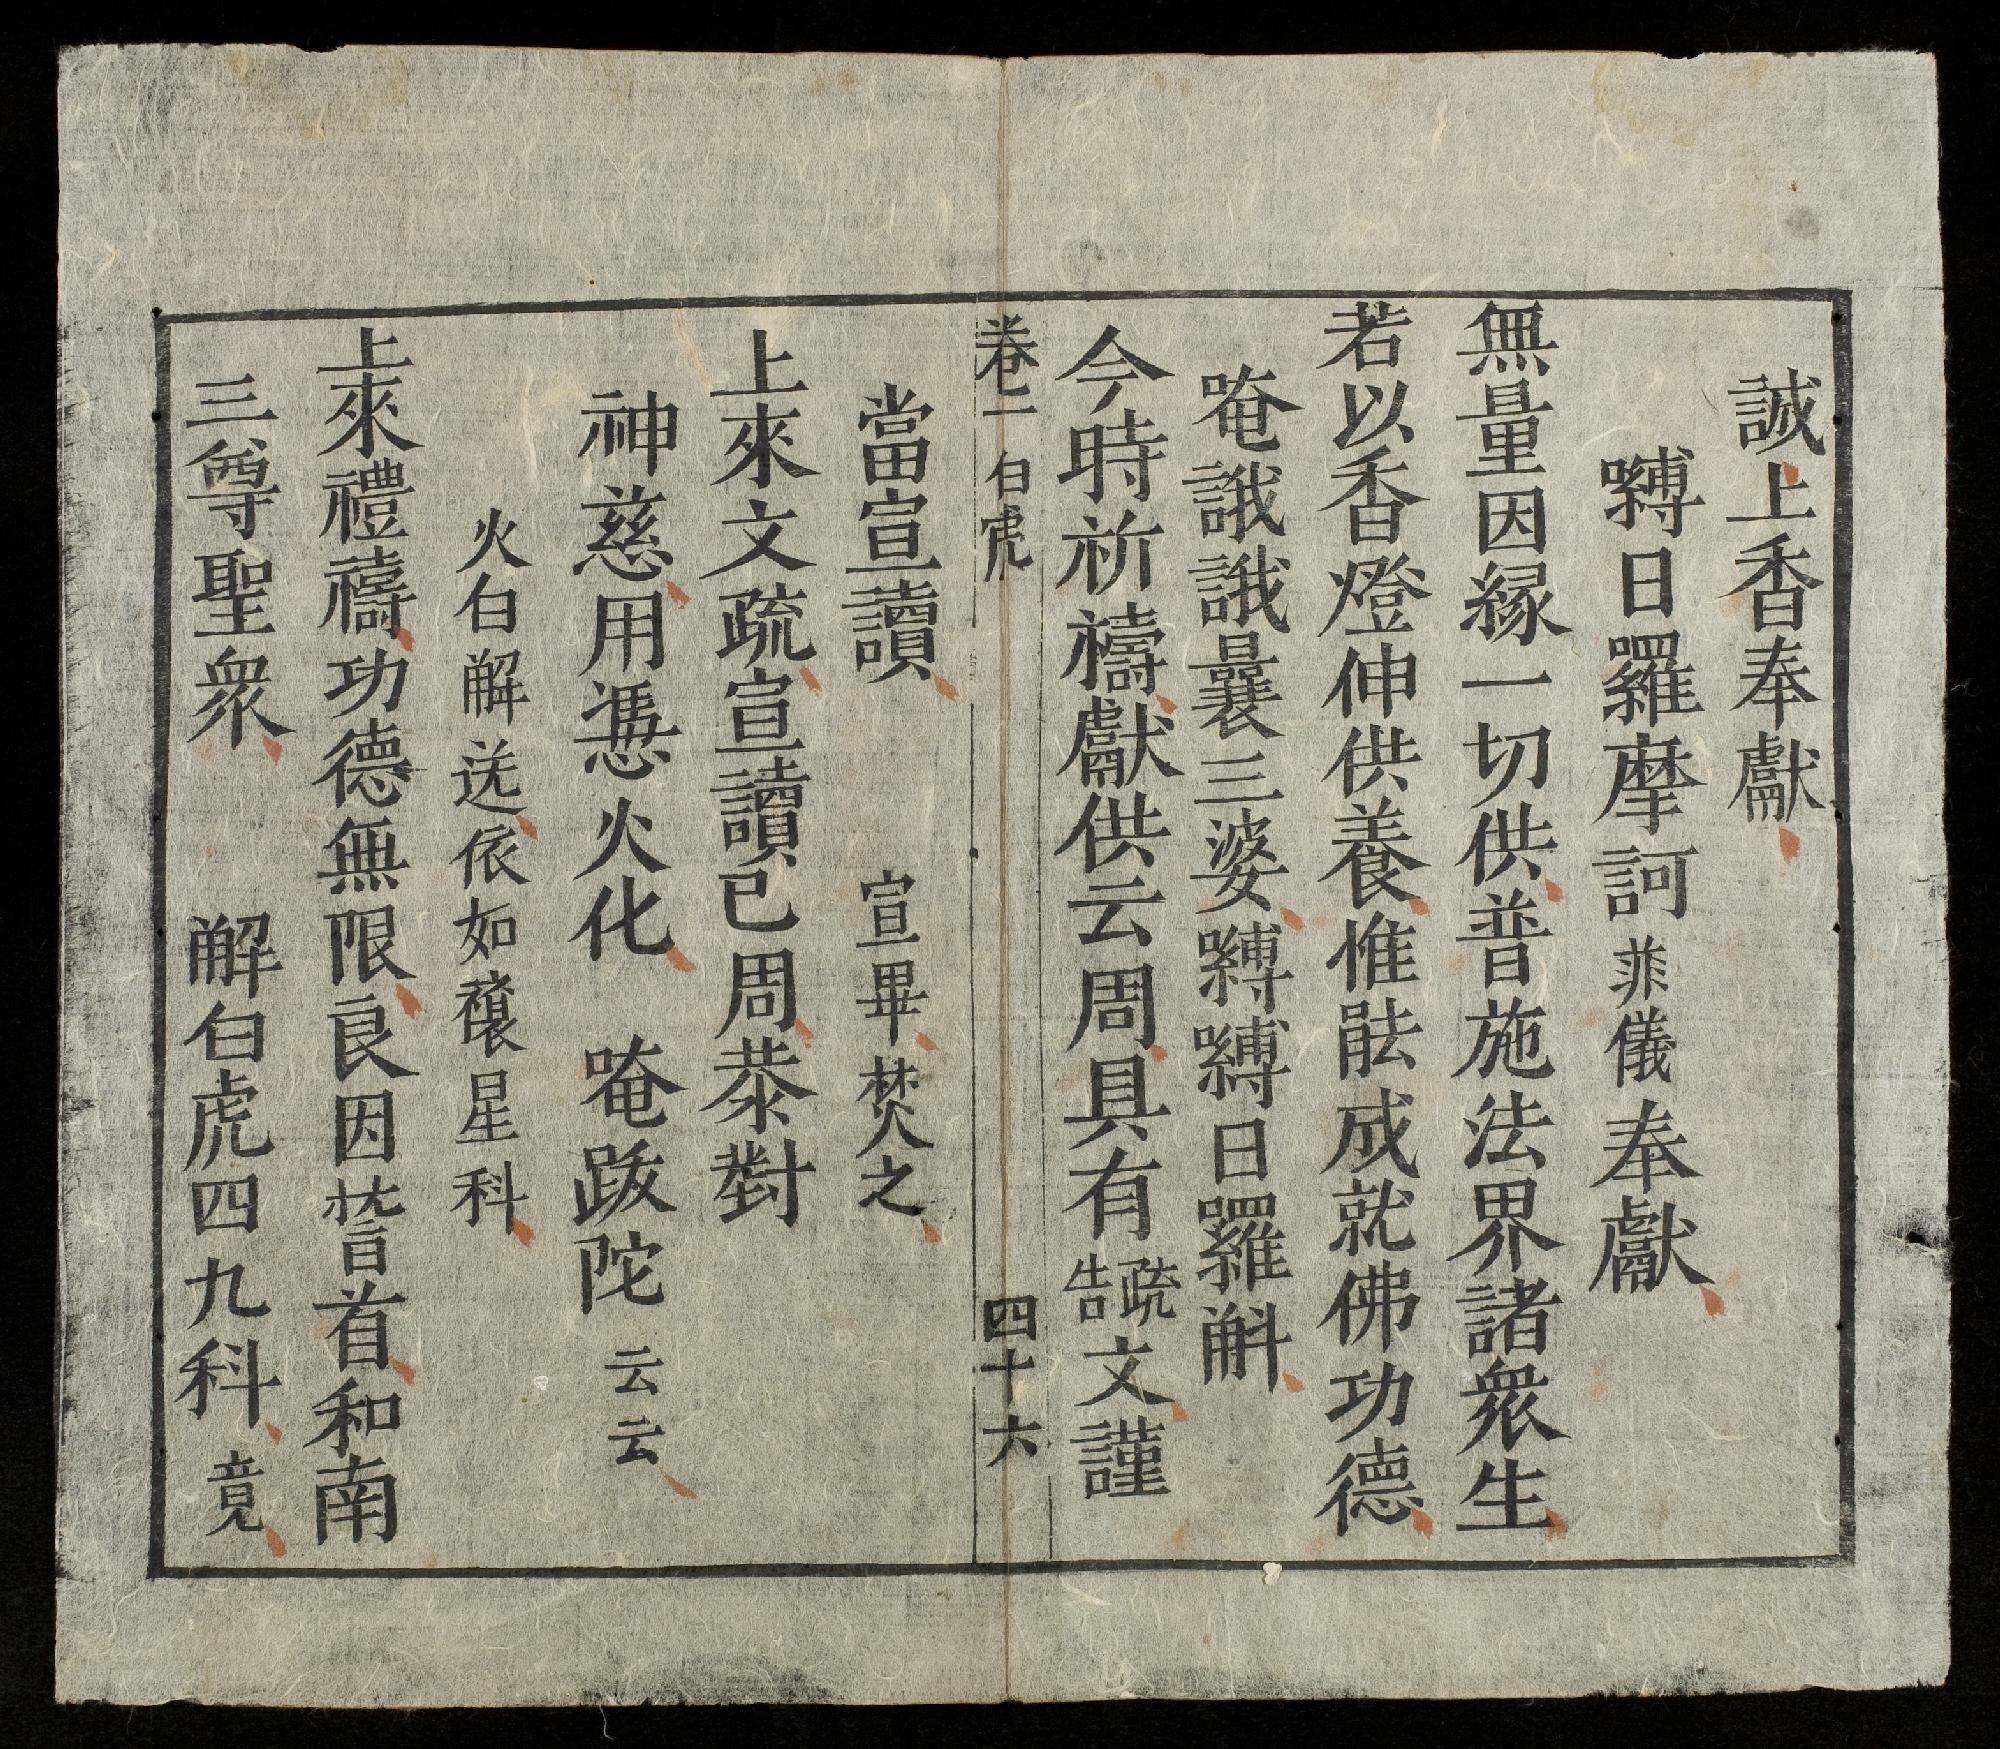 誠上香奉獻
嚩日羅摩訶菲儀奉獻
無量因緣一切供普施法界諸眾生
若以香燈伸供養惟䏻成就佛功德
唵誐誐曩三婆嚩嚩日羅斛
今時祈禱獻供云周具有疏告文謹
卷二 白虎 四十六
當宣讀 宣畢焚之
上來文疏宣讀已周恭對
神慈用憑火化 唵跋陀云云
火白解送依如禳星科
上來禮禱功德無限良因嵆首和南
三尊聖眾 解白虎四九科竟